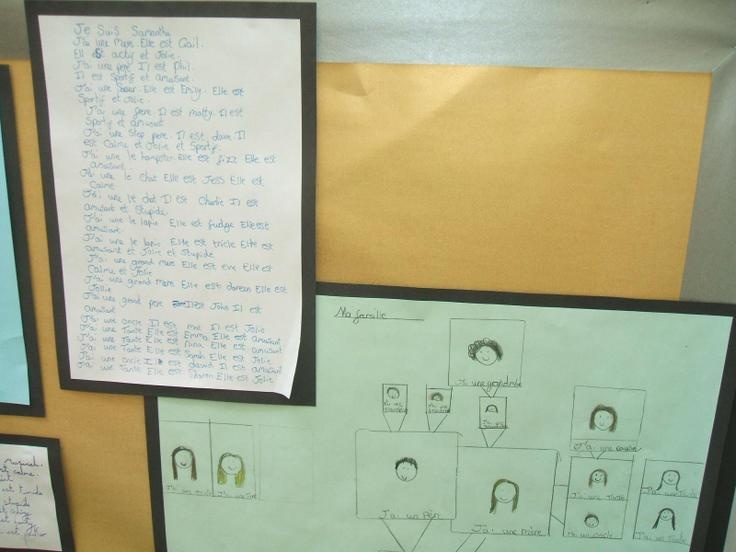 Je Suis Samantha
J'ai une Mere. Elle est Gail.
Ell est actif et Jolie.
J'ai une pere Il est Phil.
Il est Sportif et amusant.
J'ai une Soeur. Elle est Emily. Elle est
Sportif et Jolie.
J'ai une frere. Il est matty. Il est
Sporty et amusant
J'ai une Step pere. Il est dave Il
est Calme et Jolie et Sportif.
J'ai une le hampster Elle est fizz Elle est
amusant.
J'ai une le Chat Elle est Jess Elle est
Calme
J'ai une le chat Il est Charlie Il est
amusant et Stupide.
J'ai une le lapin Elle est fudge Elle est
amusant.
J'ai une le lapin Elle est tricle Elle est
amusant et Jolie et Stupide
J'ai une grand mere Elle est eve Elle est
Calme et Jolie
J'ai une grand mere Elle est doreen Elle est
Jollie
J'ai une grand pere Il est John Il est
amusant
J'ai une oncle Il est mat Il est Jolie
J'ai une Tante Elle est Emma Elle est amusant
J'ai une Tante Elle est nina Elle est amusant
J'ai une Tante Elle est Sarah Elle est Jolie
J'ai une oncle Il est david Il est amusant
J'ai une Tante Elle est Sharon Elle est Jolie
Ma famille
J'ai une
J'ai une cousin
J'ai un Père
J'ai une mère
J'ai une Tante